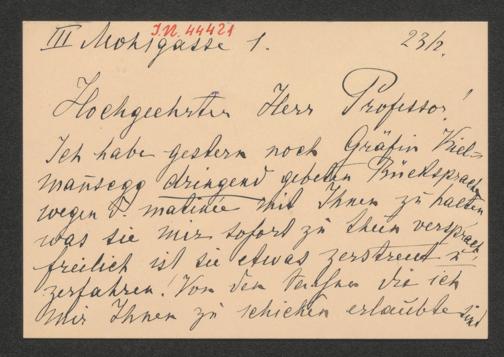 I.N. 44421
III Mohsgasse 1. 23/2.
Hochgeehrter Herr Professor!
Ich habe gestern noch Gräfin Kiel-
mansegg dringend gebeten Rücksprache
wegen d. matinée mit Ihnen zu halten
was sie mir sofort zu thun versprach
freilich ist sie etwas zerstreut u
zerfahren! Von den die ich
mir Ihnen zu schicken erlaubte sind